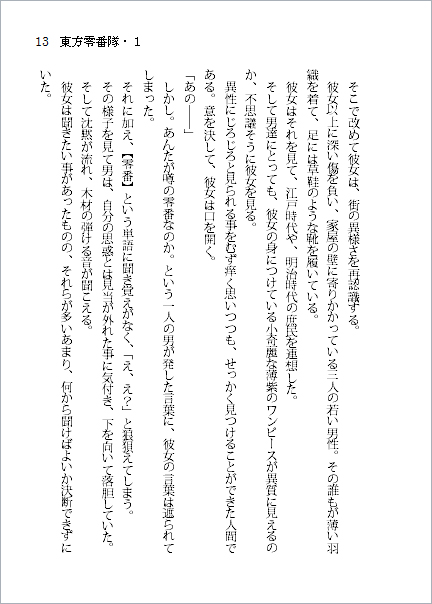 13 東方零番隊・1
そこで改めて彼女は、街の異様さを再認識する。
彼女以上に深い傷を負い、家屋の壁に寄りかかっている三人の若い男性。その誰もが薄い羽
織を着て、足には草鞋のような靴を履いている。
彼女はそれを見て、江戸時代や、明治時代の庶民を連想した。
そして男達にとっても、彼女の身につけている小奇麗な薄紫のワンピースが異質に見えるの
か、不思議そうに彼女を見る。
異性にじろじろと見られる事をむず痒く思いつつも、せっかく見つけることができた人間で
ある。意を決して、彼女は口を開く。
「あの――」
しかし。あんたが噂の零番なのか。という一人の男が発した言葉に、彼女の言葉は遮られて
しまった。
それに加え、【零番】という単語に聞き覚えがなく、「え、え？」と狼狽えてしまう。
その様子を見て男は、自分の思惑とは見当が外れた事に気付き、下を向いて落胆していた。
そして沈黙が流れ、木材の弾ける音が聞こえる。
彼女は聞きたい事があったものの、それらが多いあまり、何から聞けばよいか決断できずに
いた。